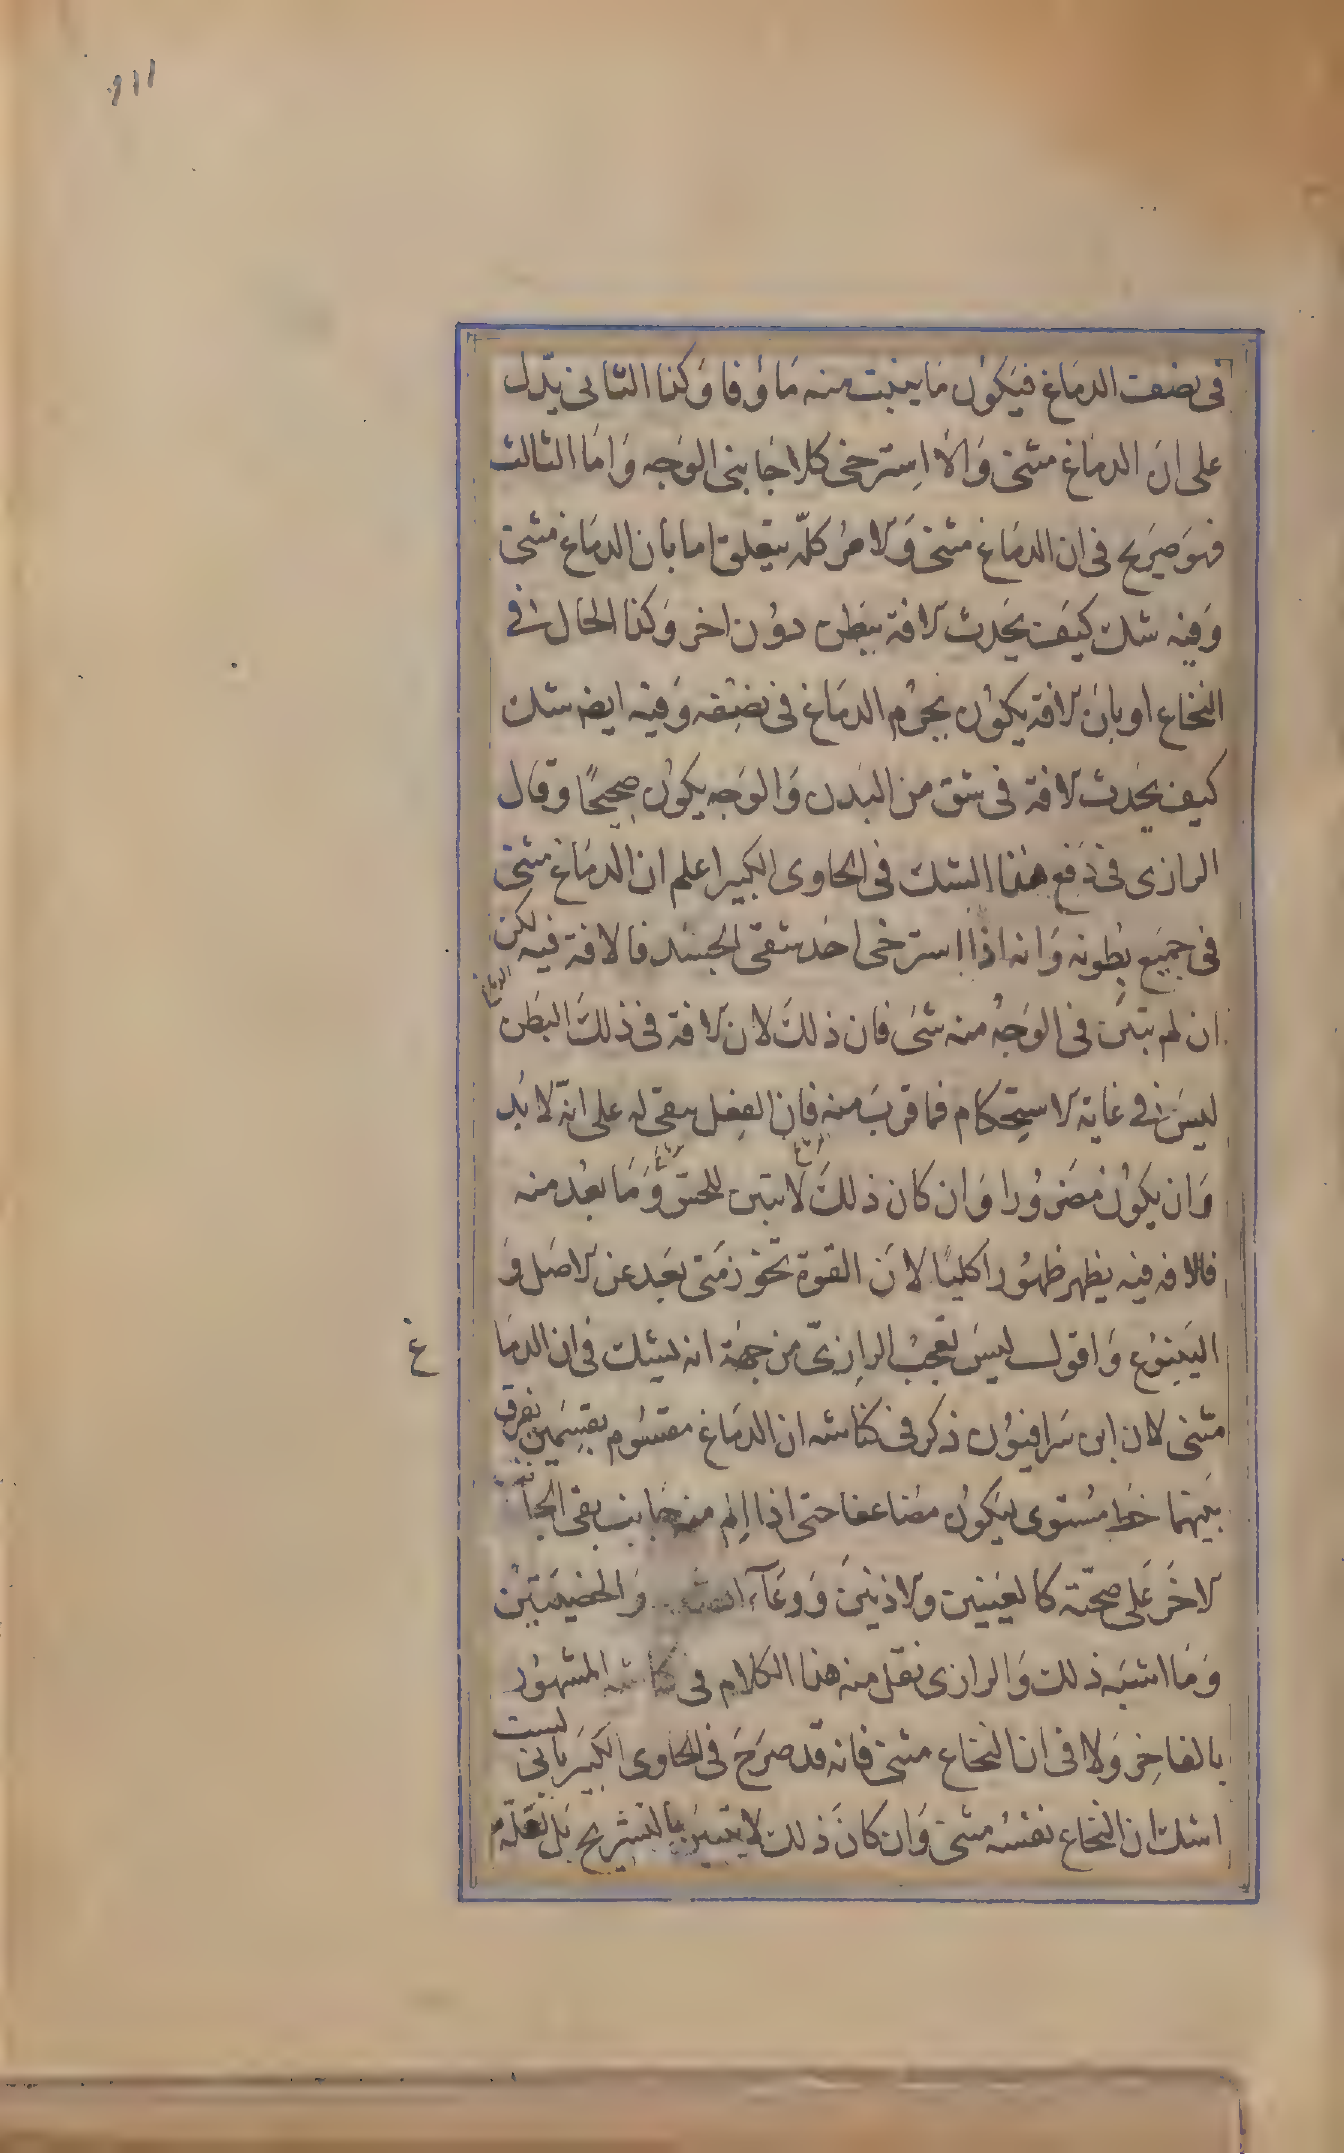 ١١٩
فى نصف الدماغ فيكون ما ينبت منه ماؤفا وكذا الثانى يدل
على ان الدماغ مثنى والا استرخى كلا جانبى الوجه واما الثالث
فهو صريح فى ان الدماغ مثنى والامر كله يتعلق اما بان الدماغ مثنى
وفيه شك كيف يحدث الافة ببطن دون اخر وكذا الحال فى
النخاع او بان الافة يكون بجرم الدماغ فى نصفه وفيه ايضا شك
كيف يحدث الافة فى شق من البدن والوجه يكون صحيحًا وقال
الرازى فى دفع هذا الشك فى الحاوى الكبير اعلم ان الدماغ مثنى
فى جميع بطونه وانه اذا استرخى احد شقى الجسد فالافة فيه لكن
ان لم يتبين فى الوجه منه شئ فان ذلك لان الافة فى ذلك البطن
الدماغ
ليس فى غاية الاستحكام فما قرب منه فان الفعل يبقى له على انه لا بد
وان يكون مضرورا وان كان ذلك لا يتبين للحس وما بعد منه
فالافه فيه يظهر ظهورا كليًا لان القوة تخور متى بعد عن الاصل و
الينبوع واقول ليس تعجب الرازىّ من جهة انه يشك فى ان الدما
غ
مثنى لان ابن سرافيون ذكر فى كناشه ان الدماغ مقسوم بقسمين يفرق
بينهما خط مستوى ليكون مضاعفا حتى اذا الم منه جانب بقى الجا
الاخر على صحته كالعينين والاذنين ووعآء والخصيتين
وما اشبه ذلك والرازى نقل منه هذا الكلام فى كناشه المشهور
بالفاخر ولا فى ان النخاع مثنى فانه قد صرح فى الحاوى الكبير بانى لست
اشك ان النخاع نفسه مثنى وان كان ذلك لا يتبين بالتشريح بل